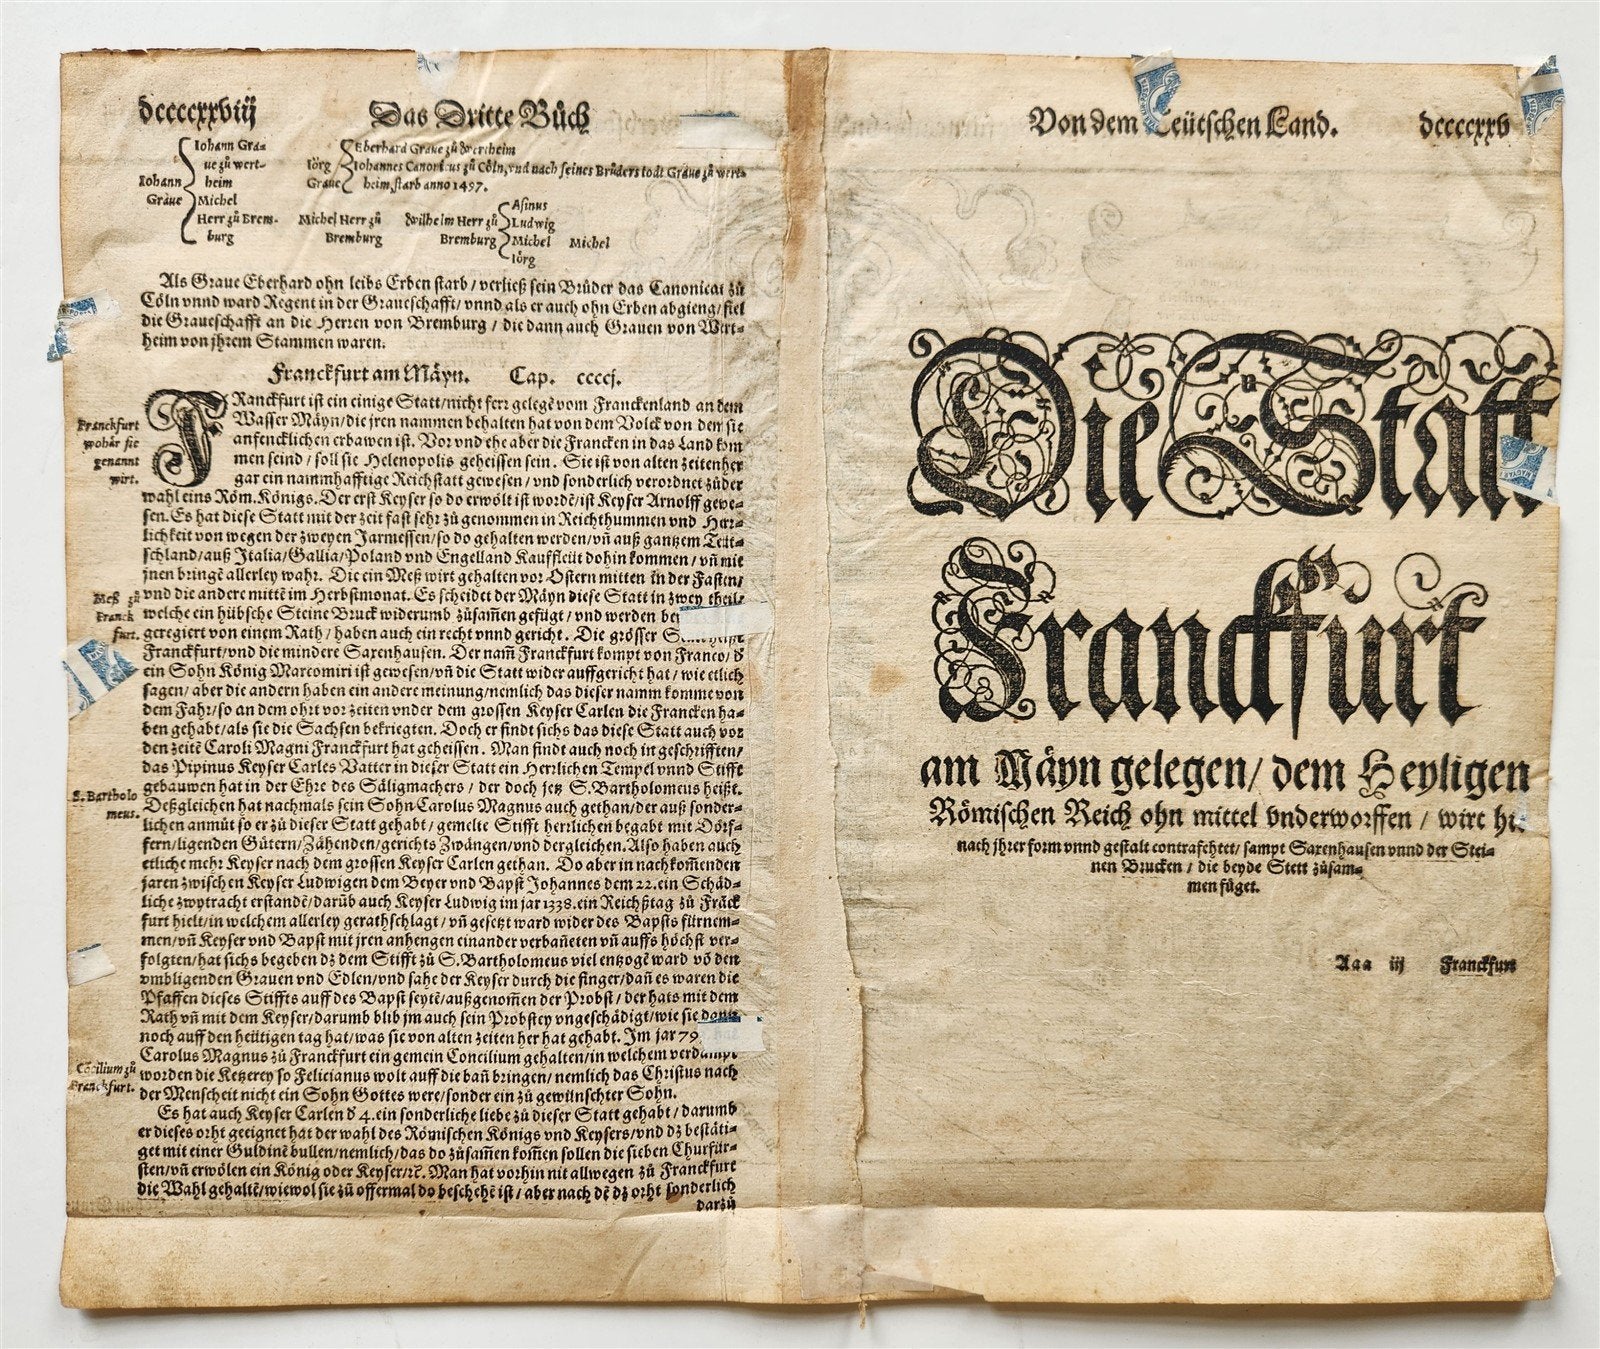 dccccxxviij
Das Dritte Bůch
Iohann Graue
Iohann Gra-
ue zů wert-
heim
Michel
Herr zů Brem-
burg
Iörg
Graue
Eberhard Graue zů Wertheim
Iohannes Canonicus zů Cöln, vnd nach seines Brůders todt Graue zů wert-
heim, starb anno 1497.
Michel Herr zů
Bremburg
Wilhelm Herr zů
Bremburg
Asinus
Ludwig
Michel
Iörg
Michel
Als Graue Eberhard ohn leibs Erben starb / verließ sein Brůder das Canonicat zů
Cöln vnnd ward Regent in der Graueschafft / vnnd als er auch ohn Erben abgieng / fiel
die Graueschafft an die Herren von Bremburg / die dann auch Grauen von Wert-
heim von jhrem Stammen waren.
Franckfurt am Mäyn. Cap. ccccj.
Franckfurt
wohär sie
genannt
wirt.
FRanckfurt ist ein einige Statt / nicht ferr gelegē vom Franckenland an dem
Wasser Mäyn / die jren nammen behalten hat von dem Volck von dem sie
anfencklichen erbawen ist. Vor vnd ehe aber die Francken in das Land kom
men seind / soll sie Helenopolis geheissen sein. Sie ist von alten zeiten her
gar ein nammhafftige Reichstatt gewesen / vnd sonderlich verordnet zů der
wahl eins Röm. Königs. Der erst Keyser so do erwölt ist wordē / ist Keyser Arnolff gewe-
sen. Es hat diese Statt mit der zeit fast sehr zů genommen in Reichthummen vnd Herr-
lichkeit von wegen der zweyen Jarmessen / so do gehalten werden / vñ auß gantzem Teüt-
schland / auß Italia / Gallia / Poland vnd Engelland Kauffleüt dohin kommen / vñ mit
jnen bringē allerley wahr. Die ein Meß wirt gehalten vor Ostern mitten in der Fasten /
vnd die andere mittē im Herbstmonat. Es scheidet der Mäyn diese Statt in zwey theil /
Meß zů
Franck
furt.
welche ein hübsche Steine Bruck widerumb zůsamen gefügt / vnd werden
geregiert von einem Rath / haben auch ein recht vnnd gericht. Die grösser
Franckfurt / vnd die mindere Saxenhausen. Der nam̄ Franckfurt kompt von Franco / d̄
ein Sohn König Marcomiri ist gewesen / vñ die Statt wider auffgericht hat / wie etlich
sagen / aber die andern haben ein andere meinung / nemlich das dieser namm komme von
dem Fahr / so an dem ohrt vor zeiten vnder dem grossen Keyser Carlen die Francken ha-
ben gehabt / als sie die Sachsen bekriegten. Doch er findt sichs das diese Statt auch vor
den zeitē Caroli Magni Franckfurt hat geheissen. Man findt auch noch in geschrifften /
das Pipinus Keyser Carles Vatter in dieser Statt ein Herrlichen Tempel vnnd Stifft
S. Bartholo
meus.
gebauwen hat in der Ehre des Säligmachers / der doch jetz S. Bartholomeus heißt.
Deßgleichen hat nachmals sein Sohn Carolus Magnus auch gethan / der auß sonder-
lichen anmůt so er zů dieser Statt gehabt / gemelte Stifft herrlichen begabt mit Dörf-
fern / ligenden Gütern / Zähenden / gerichts Zwängen / vnd dergleichen. Also haben auch
etliche mehr Keyser nach dem grossen Keyser Carlen gethan. Do aber in nachkom̄enden
jaren zwischen Keyser Ludwigen dem Beyer vnd Bapst Johannes dem 22. ein Schäd-
liche zwytracht erstandē / darūb auch Keyser Ludwig im jar 1338. ein Reichßtag zů Frāck
furt hielt / in welchem allerley gerathschlagt / vñ gesetzt ward wider des Bapsts fürnem-
men / vñ Keyser vnd Bapst mit jren anhengen einander verbañeten vñ auffs höchst ver-
folgten / hat sichs begeben dz dem Stifft zů S. Bartholomeus viel entzogē ward vō den
vmbligenden Grauen vnd Edlen / vnd sahe der Keyser durch die finger / dañ es waren die
Pfaffen dieses Stiffts auff des Bapst seytē / außgenom̄en der Probst / der hats mit dem
Rath vñ mit dem Keyser / darumb blib jm auch sein Probstey vngeschädigt / wie sie dann
noch auff den heütigen tag hat / was sie von alten zeiten her hat gehabt. Im jar 79
Cōcilium zů
Franckfurt.
Carolus Magnus zů Franckfurt ein gemein Concilium gehalten / in welchem verdampt
worden die Ketzerey so Felicianus wolt auff die bañ bringen / nemlich das Christus nach
der Menscheit nicht ein Sohn Gottes were / sonder ein zů gewünschter Sohn.
Es hat auch Keyser Carlen d̄ 4. ein sonderliche liebe zů dieser Statt gehabt / darumb
er dieses orht geeignet hat der wahl des Römischen Königs vnd Keysers / vnd dz bestäti-
get mit einer Guldinē bullen / nemlich / das do zůsam̄en kom̄en sollen die sieben Churfür-
sten / vñ erwölen ein König oder Keyser / rc̄. Man hat vorhin nit allwegen zů Franckfurt
die Wahl gehaltē / wiewol sie zů offermal do beschehē ist / aber nach dē dz orht sonderlich
darzů
Von dem Teütschen Land.
dccccxxv
Die Statt
Franckfurt
am Mäyn gelegen / dem Heyligen
Römischen Reich ohn mittel vnderworffen / wirt
nach jhrer form vnnd gestalt contrafehtet / sampt Saxenhausen vnnd der Stei-
nen Brucken / die beyde Stett zůsam-
men füget.
Aaa iij Franckfurt